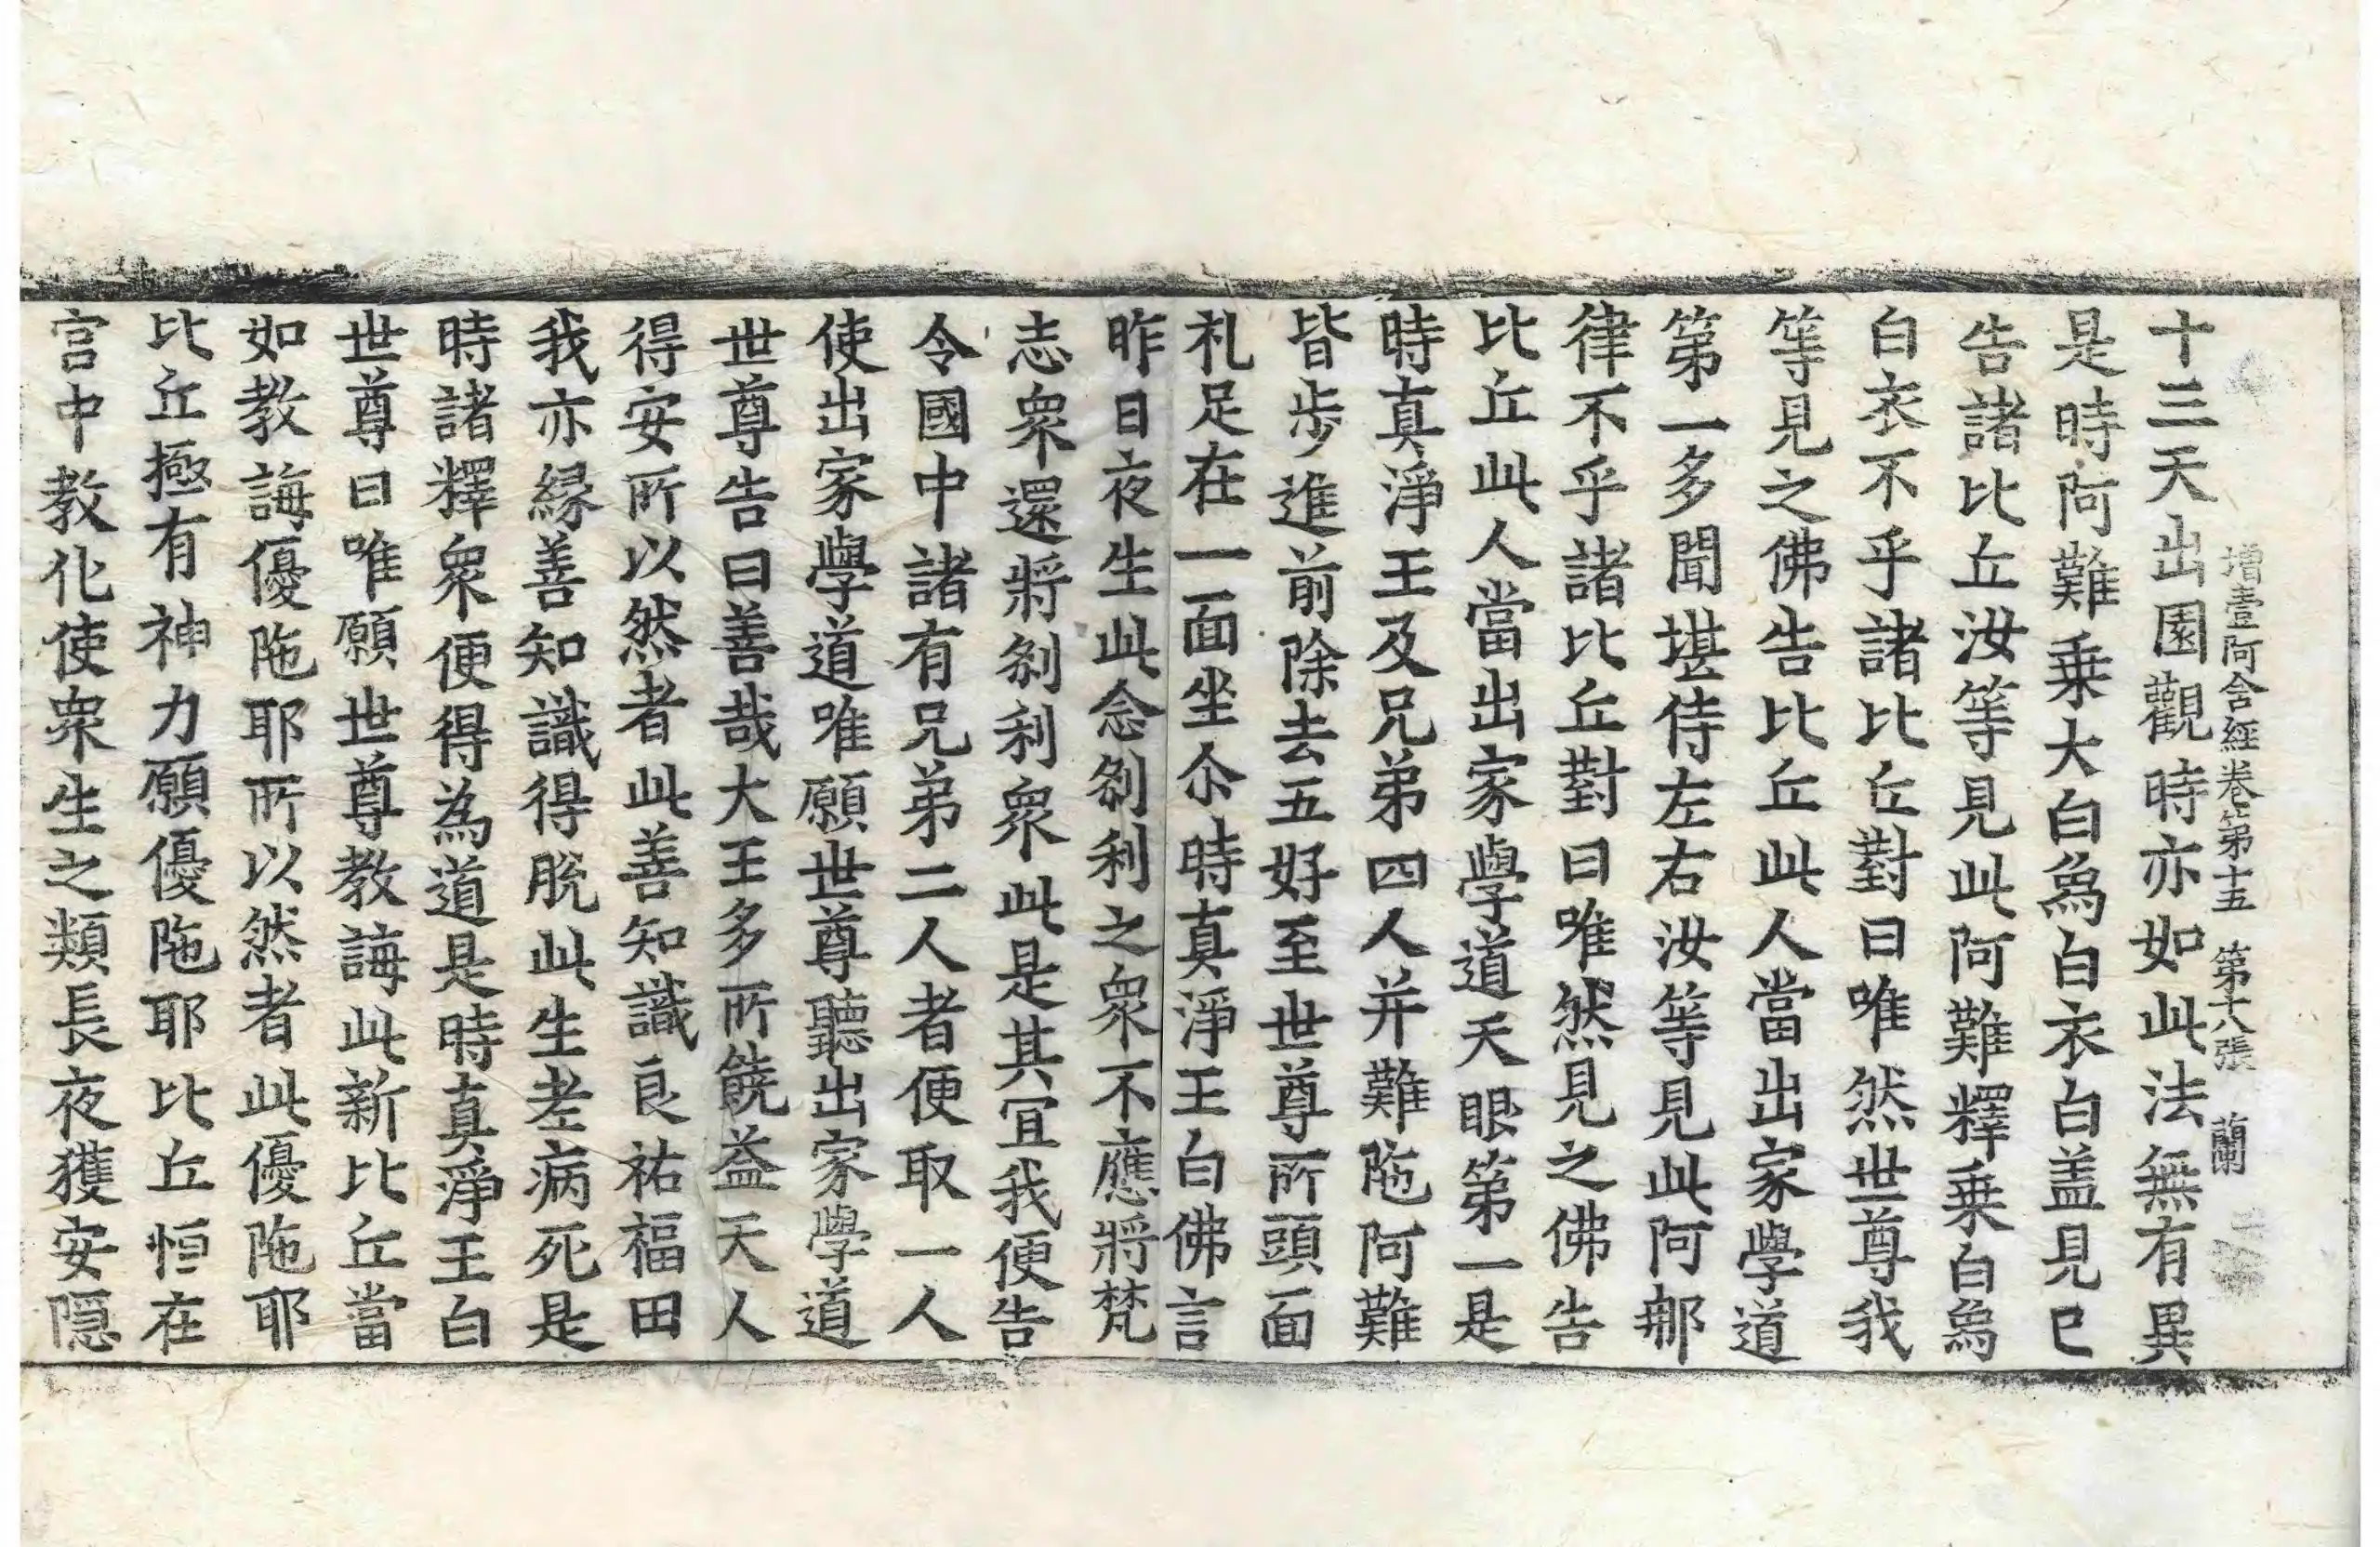 增壹阿含經卷第十五 第十八張 蘭
十三天出園觀時亦如此法無有異
是時阿難乗大白爲白衣白盖見已
告諸比丘汝等見此阿難釋乗白爲
白衣不乎諸比丘對曰唯然世尊我
等見之佛告比丘此人當出家學道
第一多聞堪侍左右汝等見此阿那
律不乎諸比丘對曰唯然見之佛告
比丘此人當出家學道天眼第一是
時真淨王及兄弟四人并難陁阿難
皆步進前除去五好至世尊所頭面
礼足在一面坐尒時真淨王白佛言
昨日夜生此念刹利之衆不應將梵
志衆還將刹利衆此是其冝我便告
令國中諸有兄弟二人者便取一人
使出家學道唯願世尊聽出家學道
世尊告曰善哉大王多所饒益天人
得安所以然者此善知識良祐福田
我亦縁善知識得脫此生老病死是
時諸釋衆便得為道是時真淨王白
世尊曰唯願世尊教誨此新比丘當
如教誨優陁耶所以然者此優陁耶
比丘極有神力願優陁耶比丘恒在
宮中教化使衆生之類長夜獲安隱